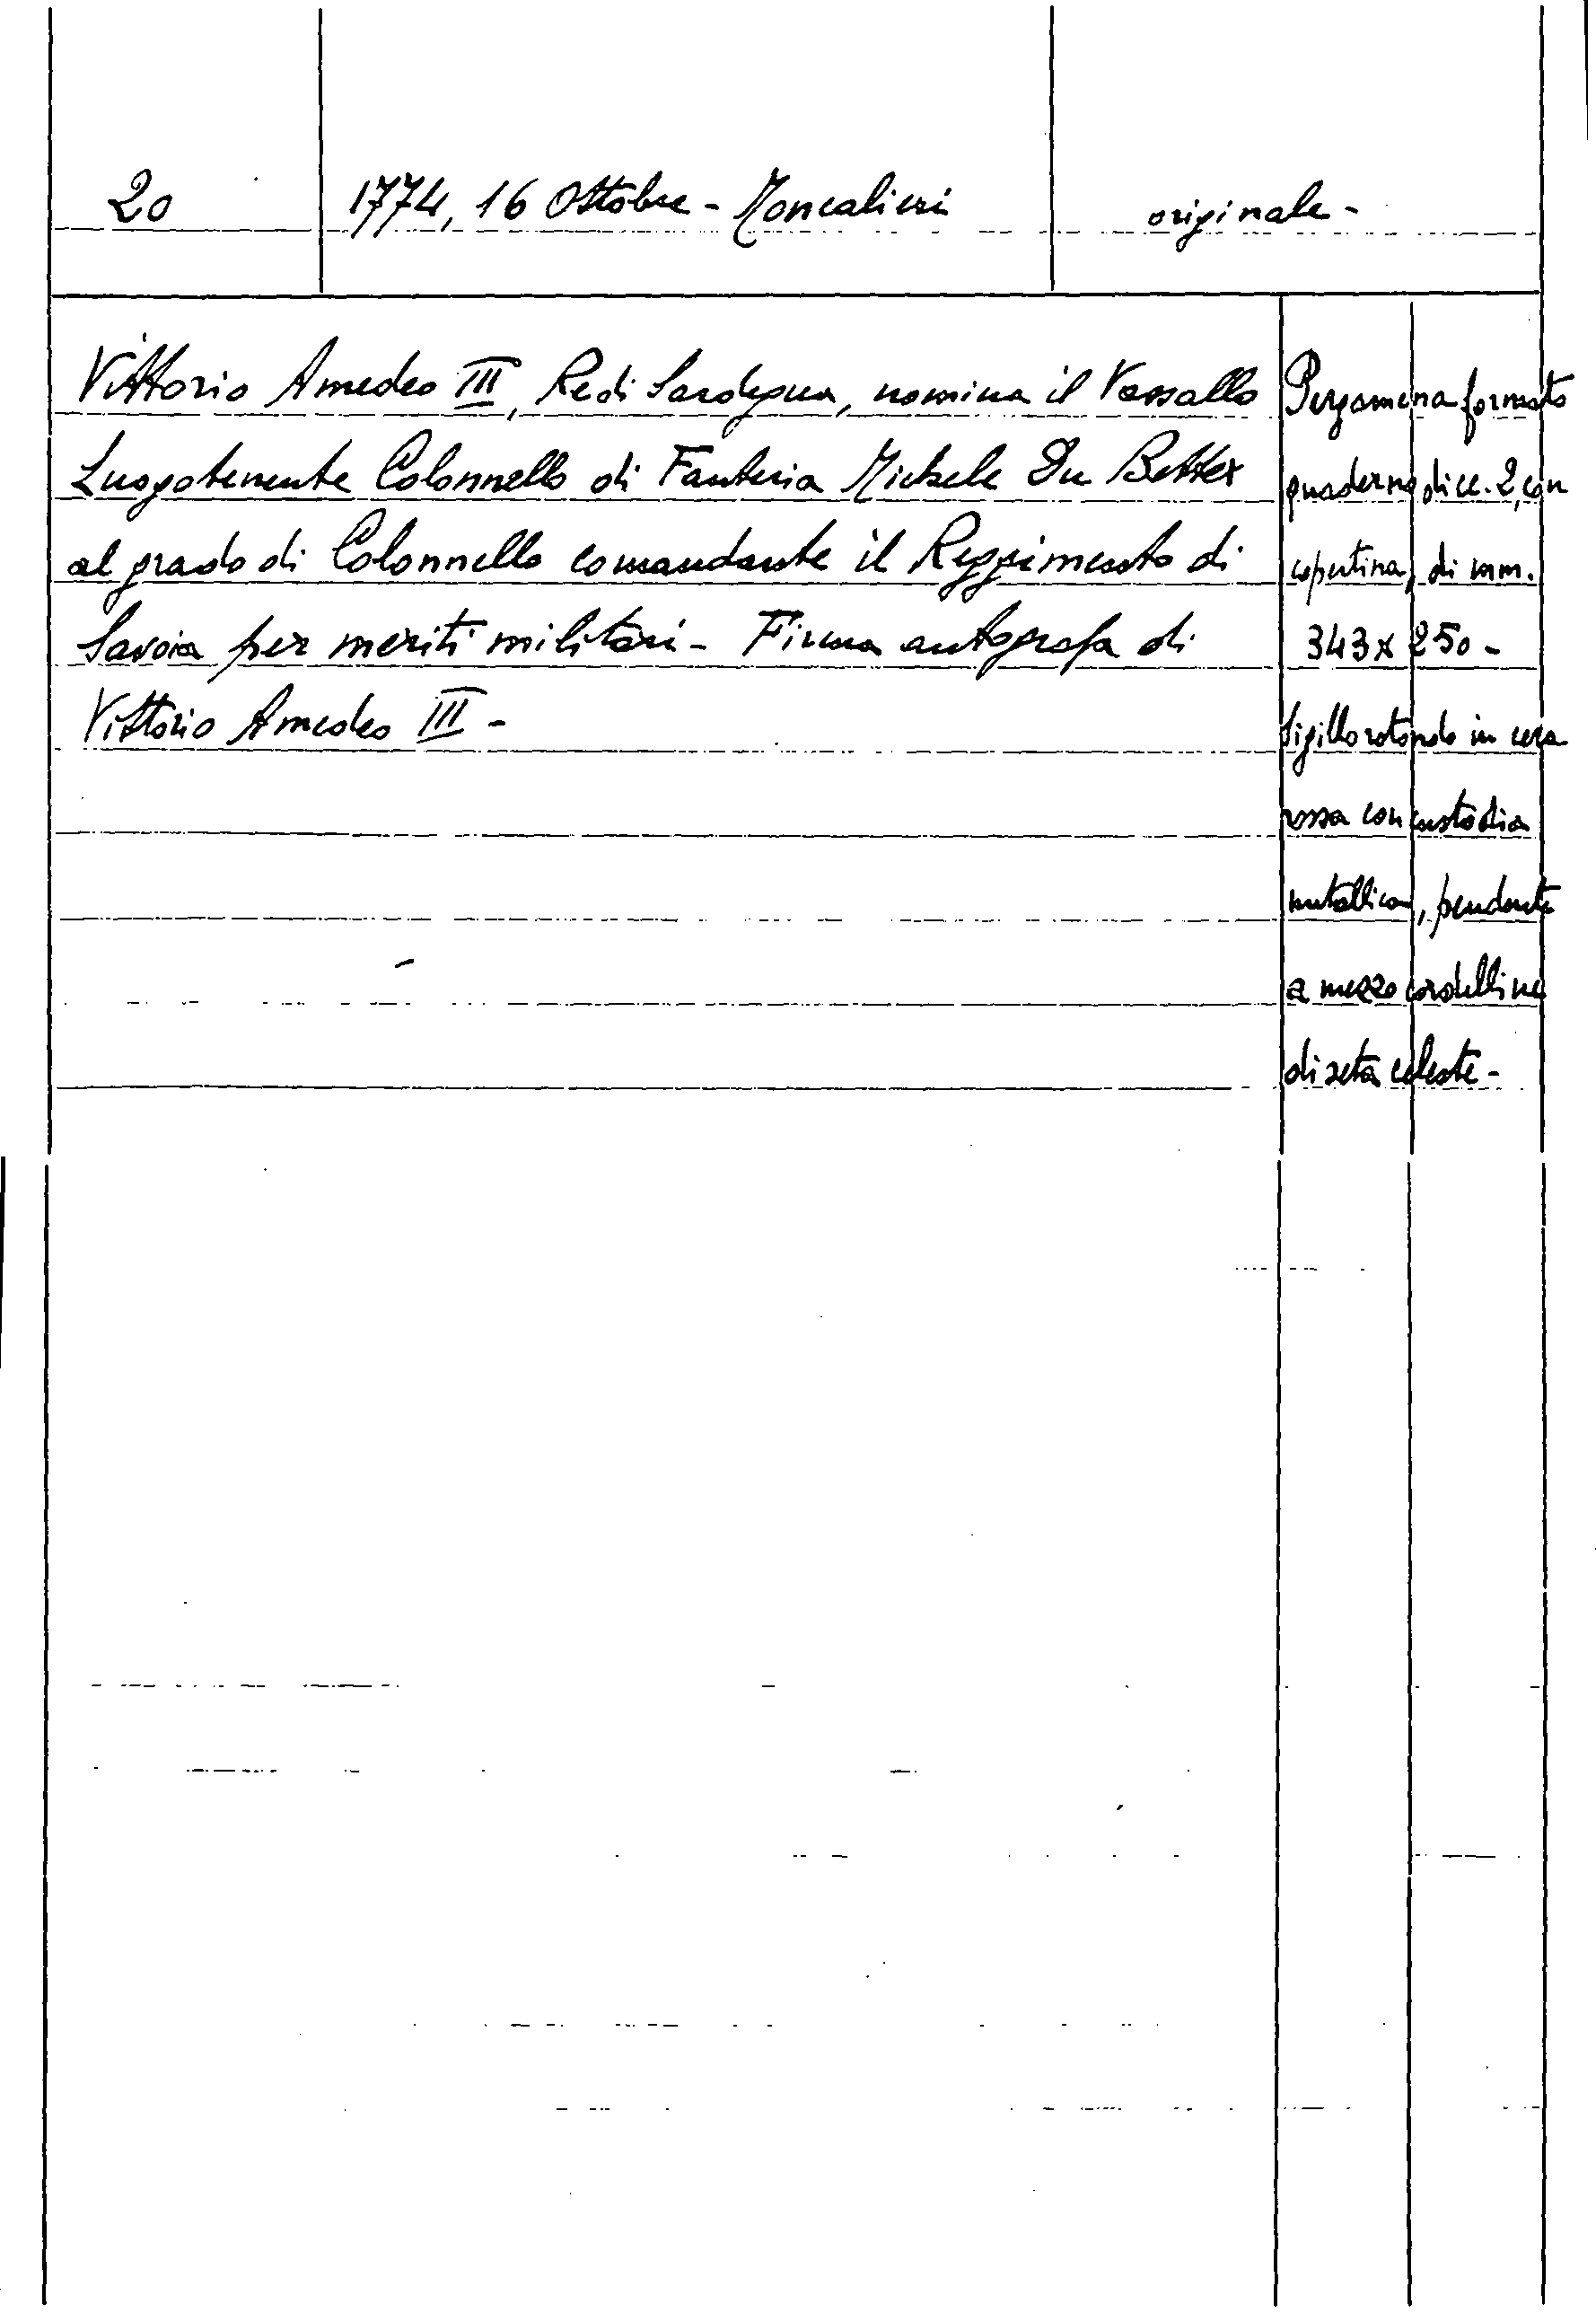 20
1774, 16 Ottobre - Moncalieri
originale -
Vittorio Amedeo III, Re di Sardegna, nomina il Vassallo
Luogotenente Colonnello di Fanteria Michele Du Better
al grado di Colonnello comandante il Reggimento di
Savoia per meriti militari - Firma autografa di
Vittorio Amedeo III -
Pergamena formato
quaderno di cc. 2, con
copertina, di mm.
343 x 250 -
Sigillo rotondo in cera
rossa con custodia
metallica, pendente
a mezzo cordelline
di seta celeste -